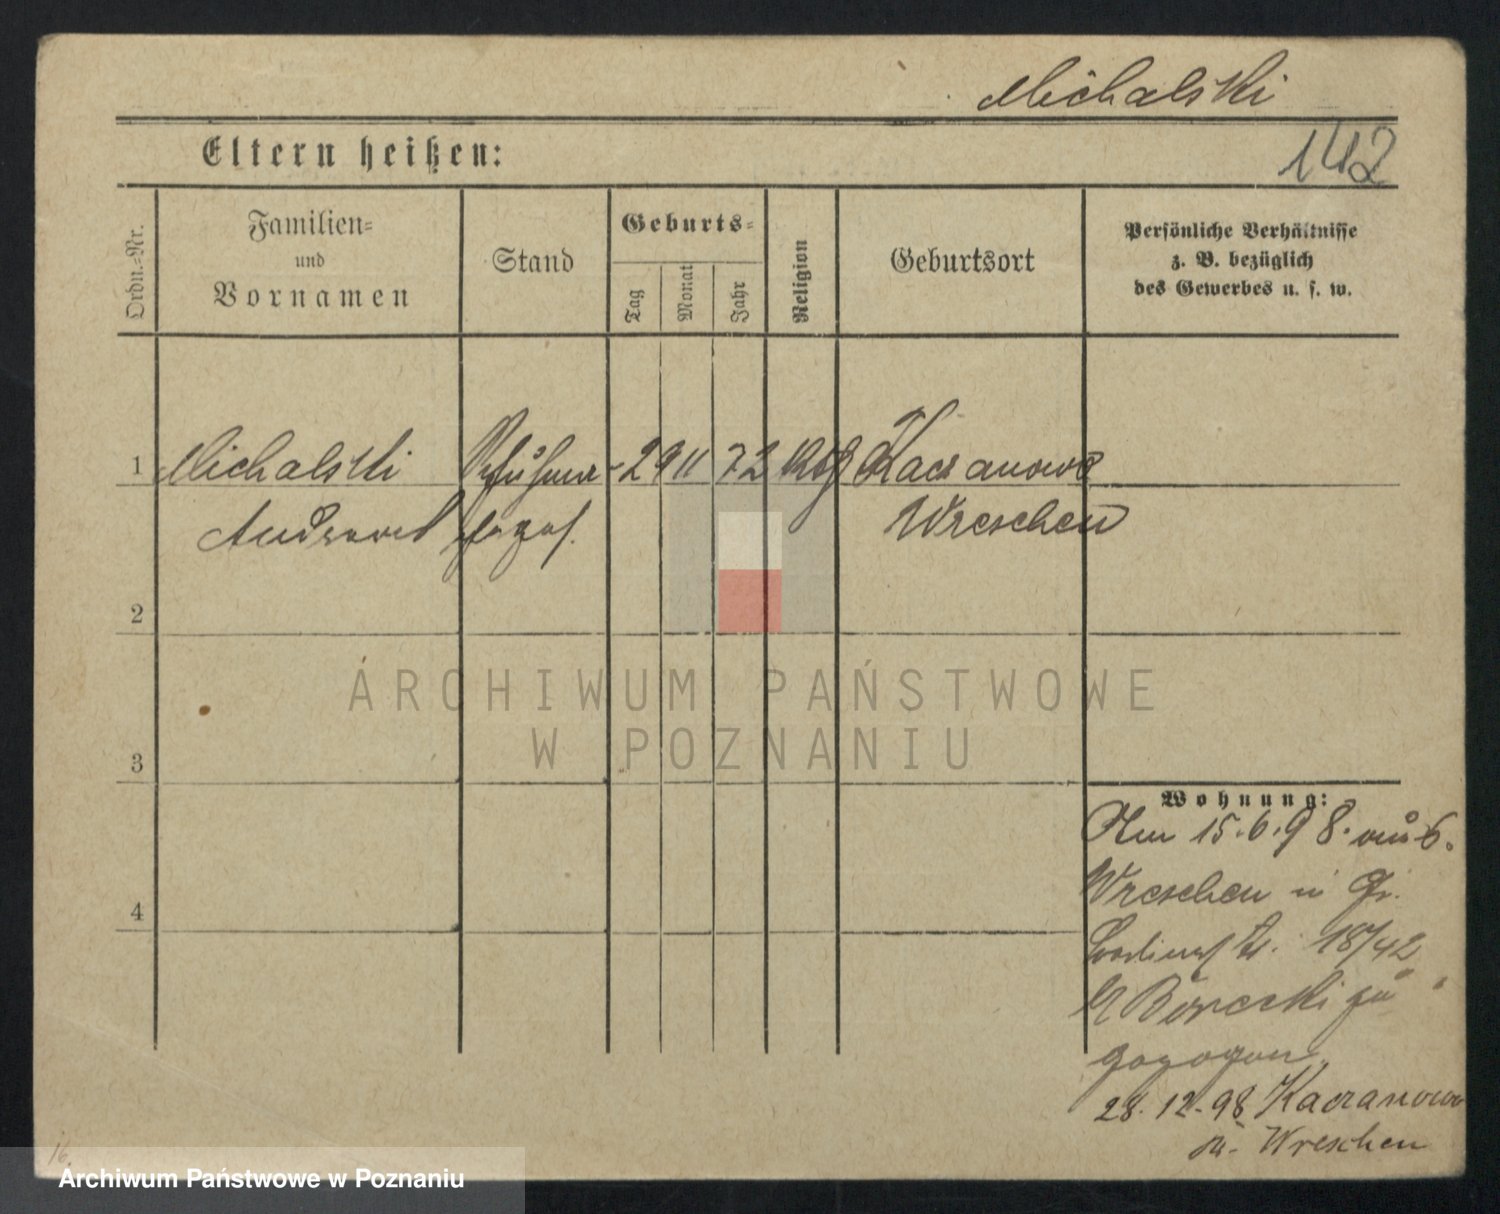 Michalski
142
Eltern heißen:
Ordn.-Nr.
Familien-
und
Vornamen
Stand
Geburts-
Tag
Monat
Jahr
Religion
Geburtsort
Persönliche Verhältnisse
z. B. bezüglich
des Gewerbes u. s. w.
1
Michalski
29 11 72
Kaczanowo
Andreas
Wreschen
2
ARCHIWUM PAŃSTWOWE
W POZNANIU
3
Wohnung:
Am 15.6.98. aus
Wreschen
18/42
zu
gezogen
28.12.98 Kaczanowo
Wreschen
4
16.
Archiwum Państwowe w Poznaniu